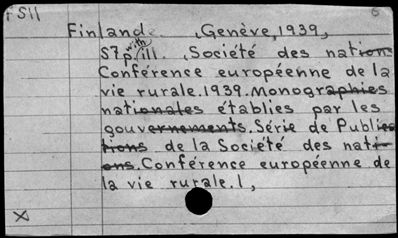 rS11 6
Finland. , Genève, 1939,
57p. with ill. , Société des nations
Conférence européenne de la
vie rurale. 1939. Monographies
nationales établies par les
gouvernements. Série de Publica
tions de la Société des nati-
ons. Conférence européenne de
la vie rurale. 1,
X